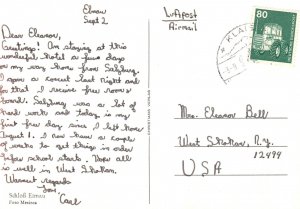 Elmau
Sept 2
Dear Eleanor,
Greetings! Am staying at this
wonderful hotel a few days
on way home from Salzburg.
I gave a concert last night and
for that I receive free room &
board. Salzburg was a lot of
hard work and today is my
first free day since I left home
August 1. I now have a couple
of weeks to get things in order
before school starts. Hope all
is well in West Shokan.
Warmest regards
Love,
Carl
Schloß Elmau
Foto Mesirca
Luftpost
Airmail
KLAIS
80
Mrs. Eleanor Bell
West Shokan, N.Y.
12494
USA